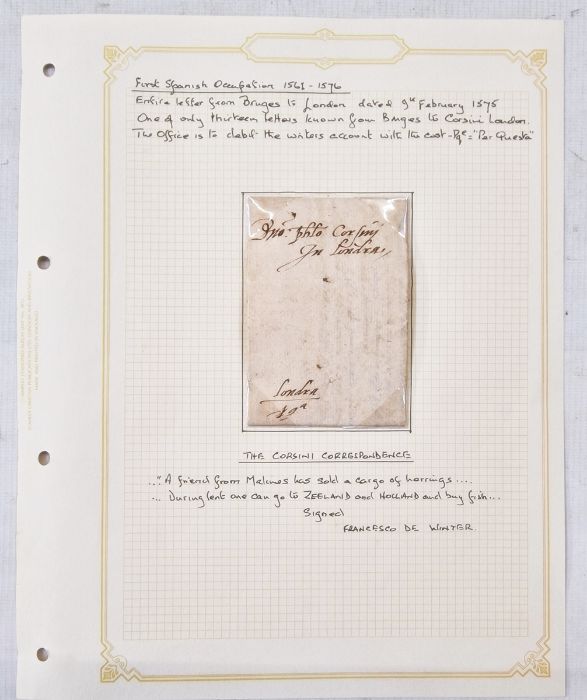 First Spanish Occupation 1561 - 1576
Entire letter from Bruges to London dated 9th February 1575
One of only thirteen letters known from Bruges to Corsini London.
The Office is to debit the writers account with the cost - Pqe = "Per Questa"
phlo Corsinj
In Londra,
Londra
THE CORSINI CORRESPONDENCE
..." A friend from Malines has sold a cargo of herrings ....
... During lent one can go to ZEELAND and HOLLAND and buy fish...
Signed
FRANCESCO DE WINTER.